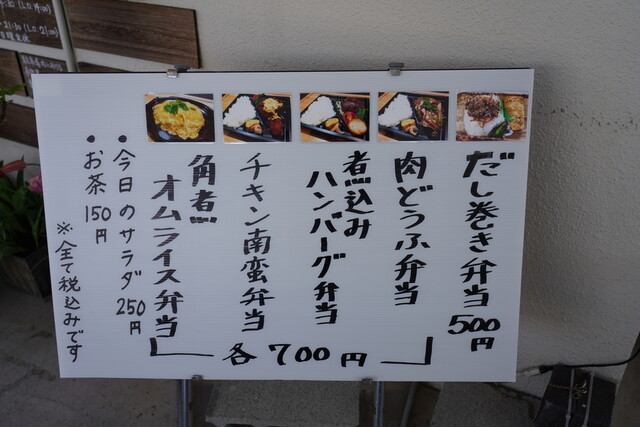 だし巻き弁当
500円
肉どうふ弁当
煮込み
ハンバーグ弁当
チキン南蛮弁当
角煮
オムライス弁当
各700円
・今日のサラダ 250円
・お茶 150円
※全て税込みです